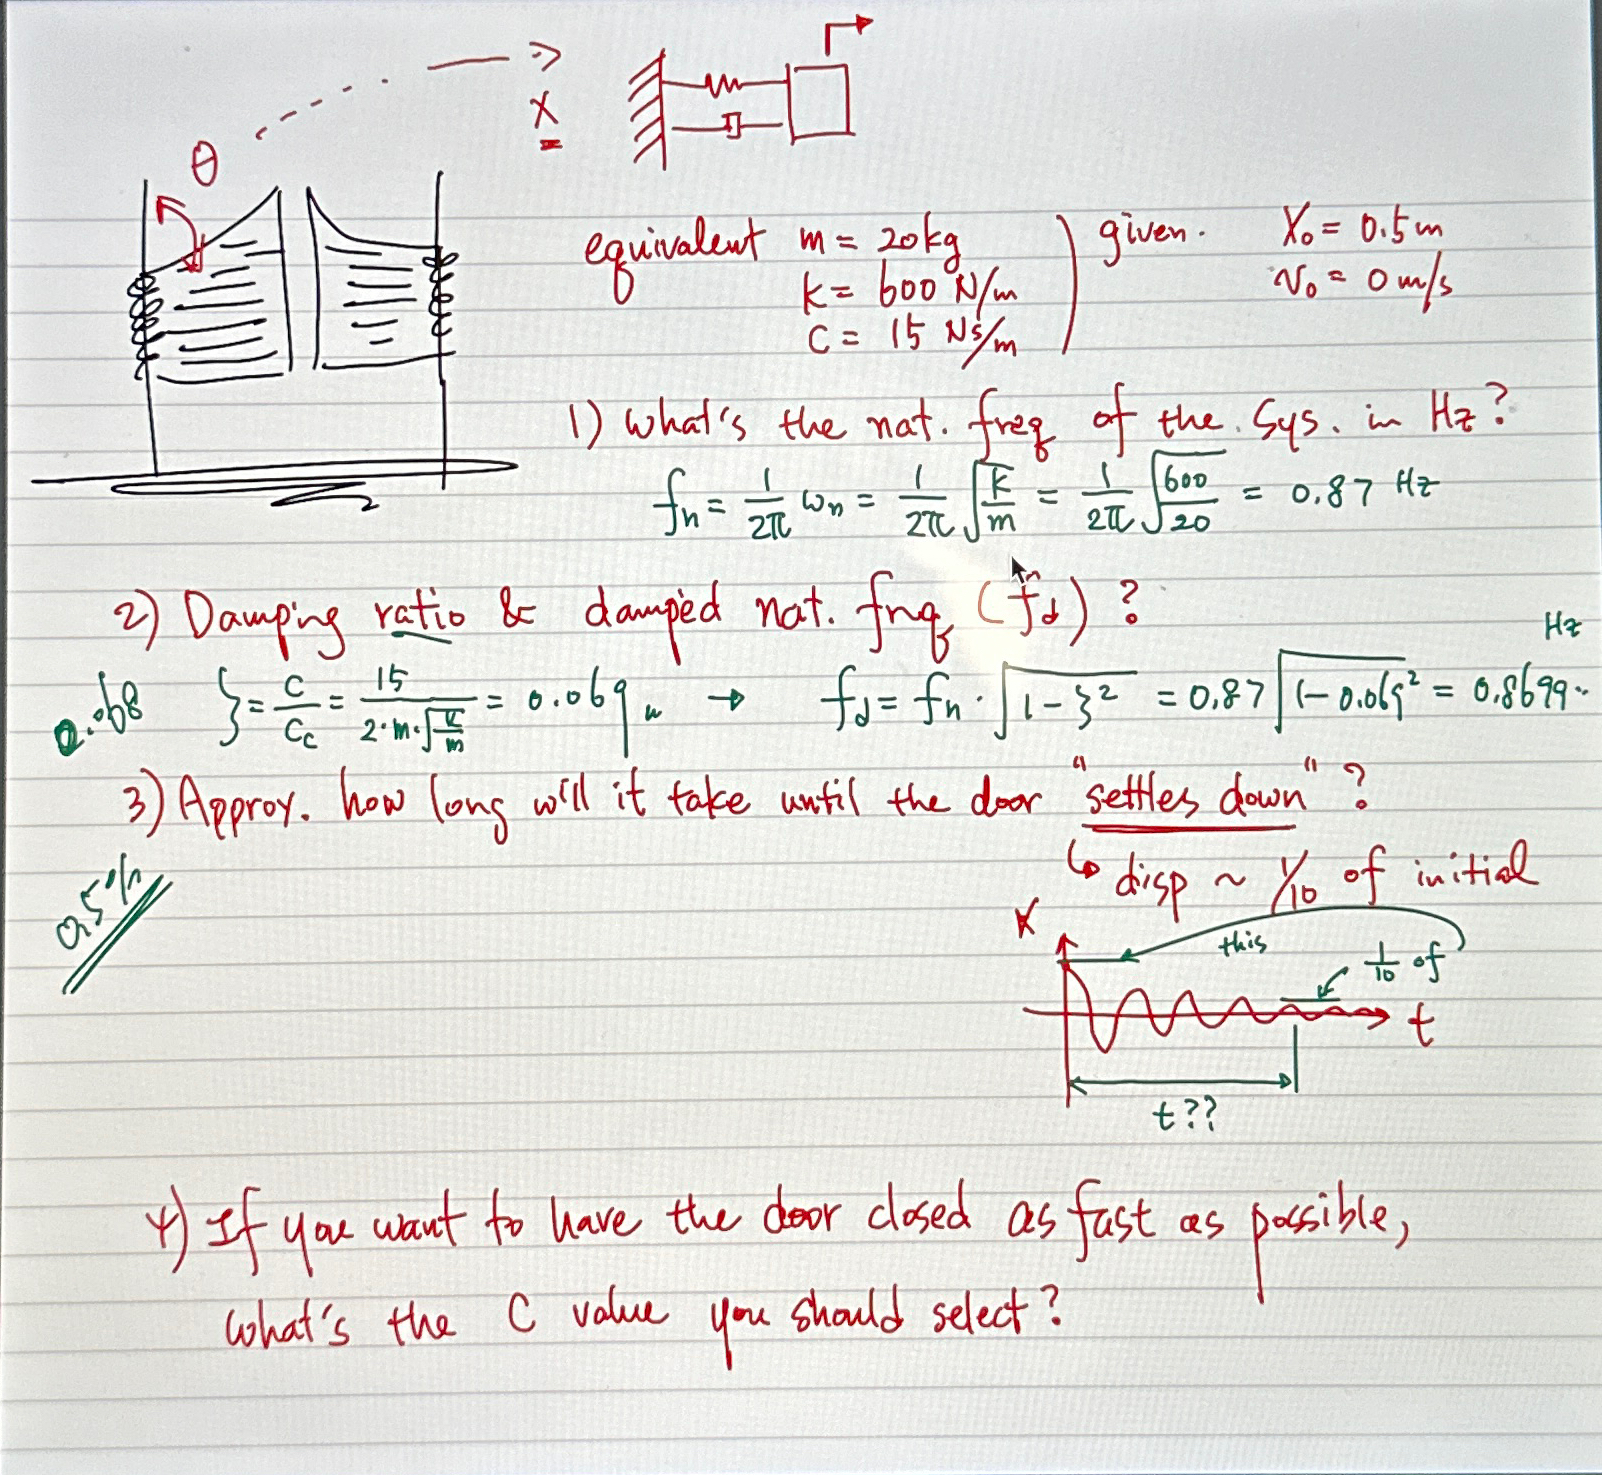 θ
X
equivalent m = 20kg
k = 600 N/m
C = 15 Ns/m
given.
X₀ = 0.5m
v₀ = 0 m/s
1) What's the nat. freq of the sys. in Hz?
fn = 1/2π ωn = 1/2π √(k/m) = 1/2π √(600/20) = 0.87 Hz
2) Damping ratio & damped nat. frq (fd) ?
0.068 ξ = C/Cc = 15/(2·m·√(k/m)) = 0.069 → fd = fn·√(1-ξ²) = 0.87 √(1-0.069²) = 0.8699.. Hz
3) Approx. how long will it take until the door "settles down" ?
↳ disp ~ 1/10 of initial
0.5%
X
this
1/10 of
t
t??
4) If you want to have the door closed as fast as possible,
what's the C value you should select?